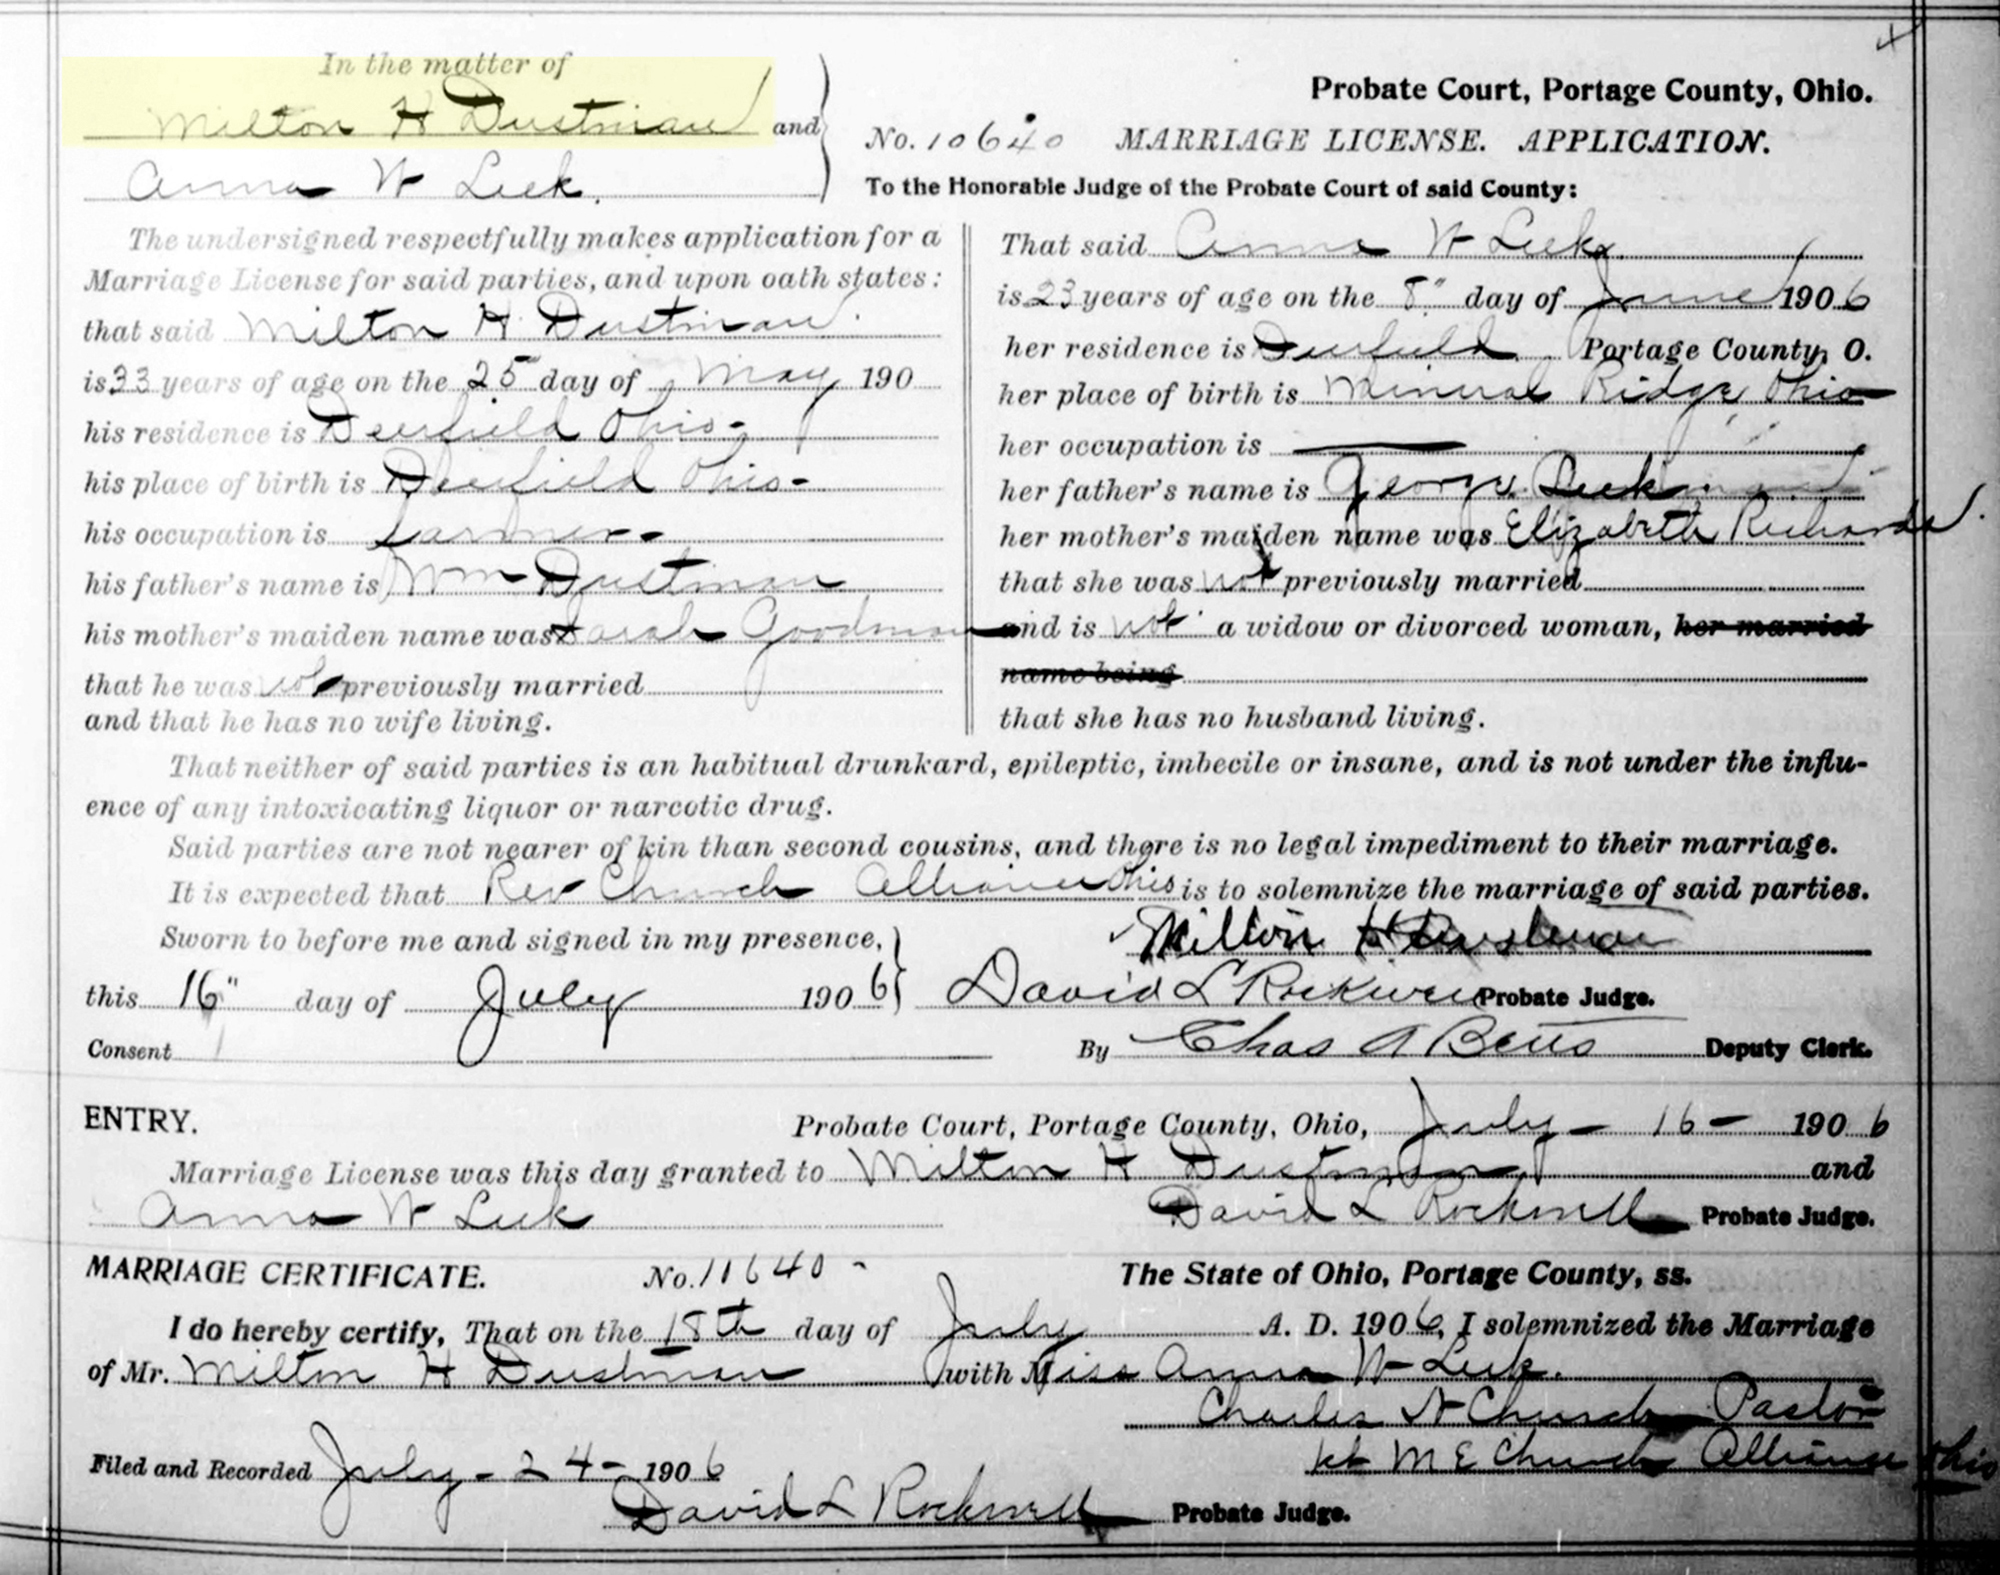 In the matter of
Milton H Dustman and
Anna W Leek.
Probate Court, Portage County, Ohio.
No. 10640 MARRIAGE LICENSE. APPLICATION.
To the Honorable Judge of the Probate Court of said County:
The undersigned respectfully makes application for a
Marriage License for said parties, and upon oath states:
that said Milton H Dustman.
is 33 years of age on the 25 day of May 190
his residence is Deerfield Ohio-
his place of birth is Deerfield Ohio-
his occupation is farmer-
his father's name is Wm Dustman
his mother's maiden name was Sarah Goodman
that he was not previously married
and that he has no wife living.
That said Anna W Leek.
is 23 years of age on the 8" day of June 1906
her residence is Deerfield Portage County, O.
her place of birth is Mineral Ridge, Ohio
her occupation is
her father's name is George Leek
her mother's maiden name was Elizabeth Richards.
that she was not previously married
and is not a widow or divorced woman, her married
name being
that she has no husband living.
That neither of said parties is an habitual drunkard, epileptic, imbecile or insane, and is not under the influ-
ence of any intoxicating liquor or narcotic drug.
Said parties are not nearer of kin than second cousins, and there is no legal impediment to their marriage.
It is expected that Rev Church Alliance Ohio is to solemnize the marriage of said parties.
Milton H Dustman
Sworn to before me and signed in my presence,
this 16" day of July 1906 David L Rockwell Probate Judge.
Consent By Chas A Betts Deputy Clerk.
ENTRY. Probate Court, Portage County, Ohio, July - 16 - 1906
Marriage License was this day granted to Milton H Dustman and
Anna W Leek David L Rockwell Probate Judge.
MARRIAGE CERTIFICATE. No. 10640 - The State of Ohio, Portage County, ss.
I do hereby certify, That on the 18th day of July A. D. 1906, I solemnized the Marriage
of Mr. Milton H Dustman with Miss Anna W Leek.
Charles N Church Pastor
M E Church Alliance Ohio
Filed and Recorded July - 24 - 1906
David L Rockwell Probate Judge.